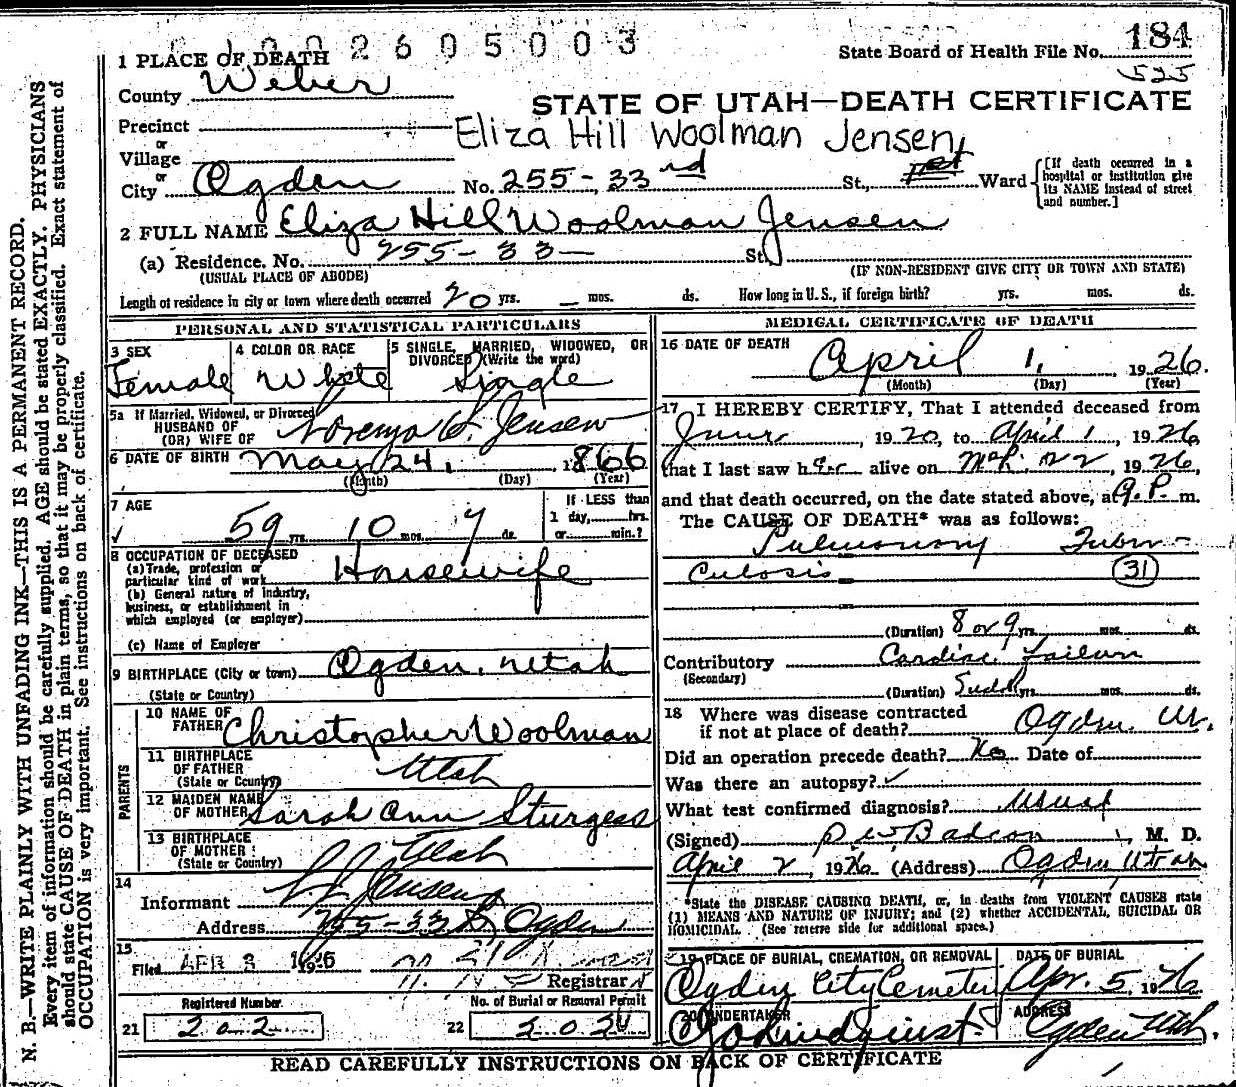 2605003
State Board of Health File No. 184
525
1 PLACE OF DEATH
County Weber
STATE OF UTAH—DEATH CERTIFICATE
Precinct
Eliza Hill Woolman Jensen
or
Village
or
City Ogden No. 255-33rd St., Ward
[If death occurred in a hospital or institution give its NAME instead of street and number.]
2 FULL NAME Eliza Hill Woolman Jensen
(a) Residence. No. 255-33— St.
(USUAL PLACE OF ABODE) (IF NON-RESIDENT GIVE CITY OR TOWN AND STATE)
Length of residence in city or town where death occurred 20 yrs. — mos. ds. How long in U. S., if foreign birth? yrs. mos. ds.
PERSONAL AND STATISTICAL PARTICULARS
3 SEX
Female
4 COLOR OR RACE
White
5 SINGLE, MARRIED, WIDOWED, OR
DIVORCED (Write the word)
Single
5a If Married, Widowed, or Divorced
HUSBAND OF
(OR) WIFE OF Jensen
6 DATE OF BIRTH May 24, 1866
(Month) (Day) (Year)
7 AGE
59 yrs. 10 mos. 7 ds.
If LESS than
1 day, hrs.
or min.?
8 OCCUPATION OF DECEASED
(a) Trade, profession or
particular kind of work Housewife
(b) General nature of industry,
business, or establishment in
which employed (or employer)
(c) Name of Employer
9 BIRTHPLACE (City or town) Ogden, Utah
(State or Country)
PARENTS
10 NAME OF
FATHER Christopher Woolman
11 BIRTHPLACE
OF FATHER
(State or Country) Utah
12 MAIDEN NAME
OF MOTHER Sarah Ann Sturgess
13 BIRTHPLACE
OF MOTHER
(State or Country) Utah
14
Informant Jensen
Address 255-33 St Ogden
15
Filed APR 3 1926
Registrar
Registered Number
21 202
No. of Burial or Removal Permit
22
MEDICAL CERTIFICATE OF DEATH
16 DATE OF DEATH
April 1, 1926.
(Month) (Day) (Year)
17 I HEREBY CERTIFY, That I attended deceased from
June, 1920, to April 1, 1926
that I last saw her alive on Mch. 22, 1926,
and that death occurred, on the date stated above, at 9.P. m.
The CAUSE OF DEATH* was as follows:
Pulmonary Tuber-
culosis (31)
(Duration) 8 or 9 yrs. mos. ds.
Contributory Cardiac Failure
(Secondary)
(Duration) yrs. mos. ds.
18 Where was disease contracted
if not at place of death? Ogden. Ut.
Did an operation precede death? No Date of
Was there an autopsy? ✓
What test confirmed diagnosis? Usual
(Signed) M. D.
April 2, 1926 (Address) Ogden Utah
*State the DISEASE CAUSING DEATH, or, in deaths from VIOLENT CAUSES state
(1) MEANS AND NATURE OF INJURY; and (2) whether ACCIDENTAL, SUICIDAL OR
HOMICIDAL. (See reverse side for additional space.)
19 PLACE OF BURIAL, CREMATION, OR REMOVAL
Ogden City Cemetery
DATE OF BURIAL
Apr. 5, 1926
20 UNDERTAKER
ADDRESS
Ogden Utah.
READ CAREFULLY INSTRUCTIONS ON BACK OF CERTIFICATE
N. B.—WRITE PLAINLY WITH UNFADING INK—THIS IS A PERMANENT RECORD.
Every item of information should be carefully supplied. AGE should be stated EXACTLY. PHYSICIANS
should state CAUSE OF DEATH in plain terms, so that it may be properly classified. Exact statement of
OCCUPATION is very important. See instructions on back of certificate.